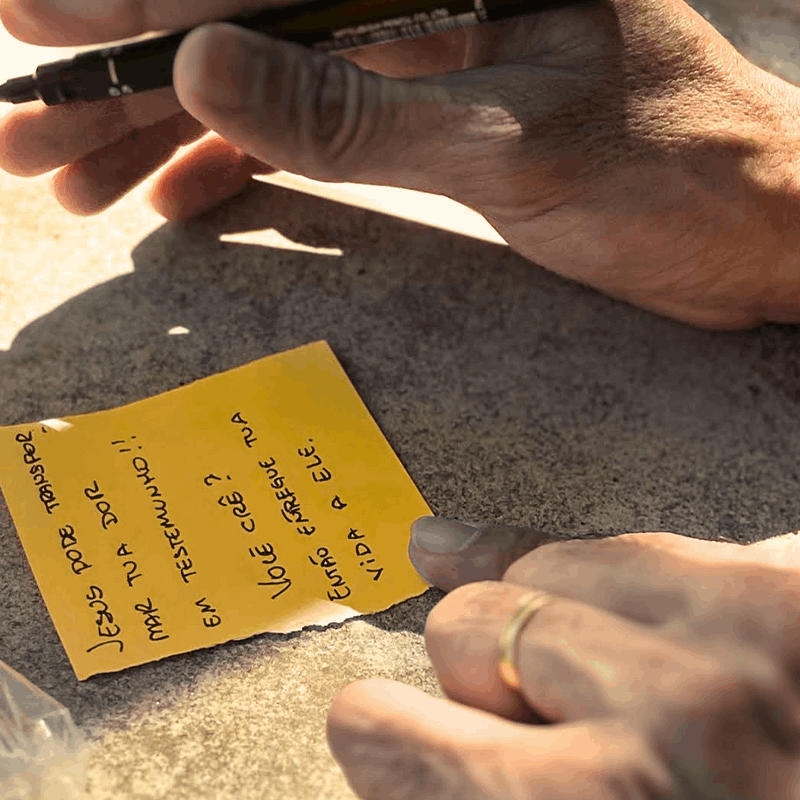 JESUS PODE TRANSPOR-
MAR TUA DOR
EM TESTEMUNHO!!
VOCÊ CRÊ?
ENTÃO ENTREGUE TUA
VIDA A ELE.